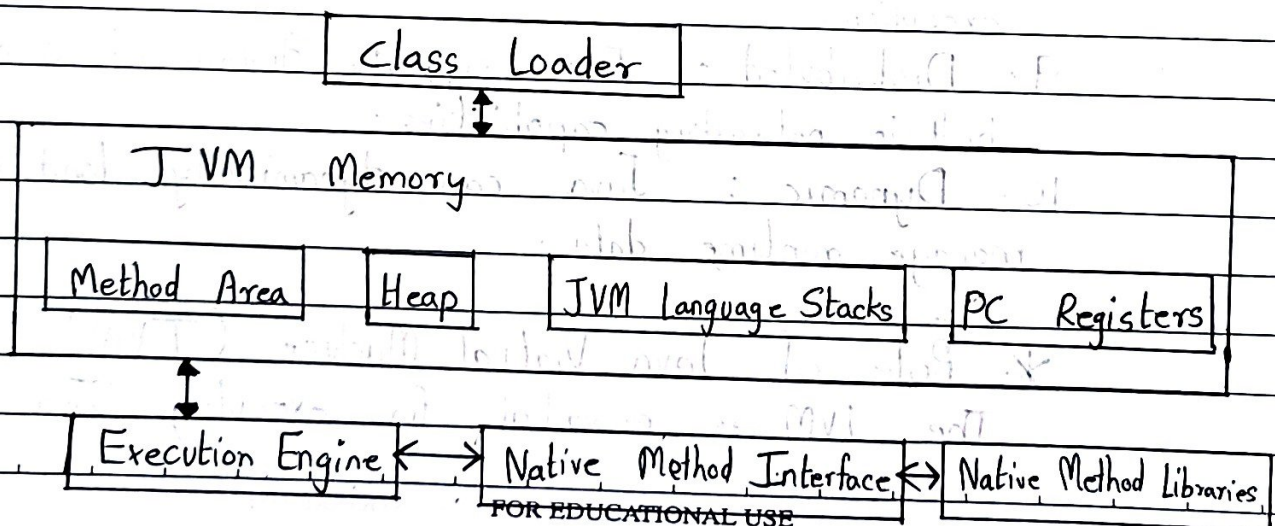 Class Loader
JVM Memory
Method Area Heap JVM Language Stacks PC Registers
Execution Engine Native Method Interface Native Method Libraries
FOR EDUCATIONAL USE